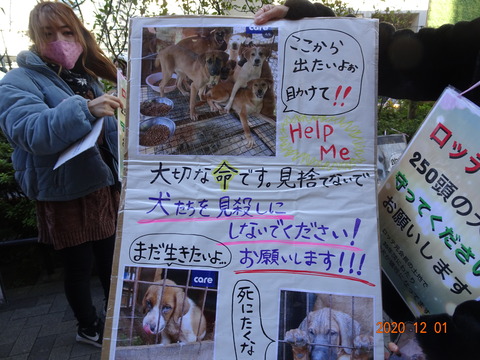 care
ここから
出たいよぉ
助けて!!
Help
Me
大切な命です。見捨てないで
犬たちを見殺しに
しないでください!
お願いします!!!
まだ生きたいよ..
care
死にたくな
ロッテ
250頭の犬
守ってください
お願いします
2020 12 01